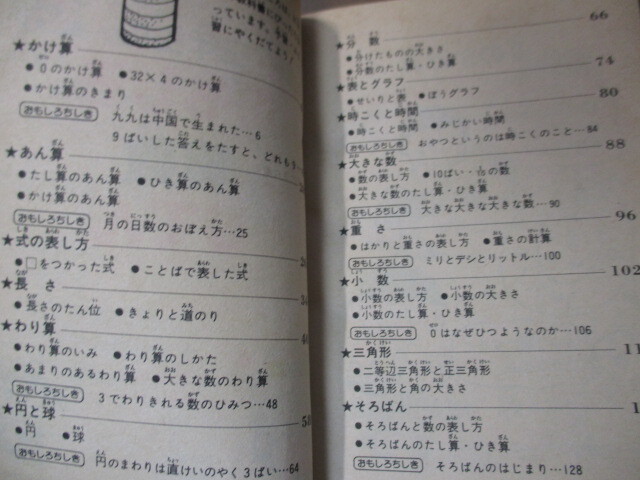 っています。
習にやくだてよ
★かけ算
●0のかけ算 ●32×4のかけ算
●かけ算のきまり
おもしろちしき 九九は中国で生まれた…6
9ばいした答えをたすと、
★あん算
●たし算のあん算 ●ひき算のあん算
●かけ算のあん算
おもしろちしき 月の日数のおぼえ方…25
★式の表し方
●□をつかった式 ●ことばで表した式
★長さ
●長さのたん位 ●きょりと道のり
★わり算
●わり算のいみ ●わり算のしかた
●あまりのあるわり算 ●大きな数のわり算
おもしろちしき 3でわりきれる数のひみつ…48
★円と球
●円 ●球
おもしろちしき 円のまわりは直けいのやく3ばい…64
66
★分数
●分けたものの大きさ
●分数のたし算・ひき算
74
★表とグラフ
●せいりと表 ●ぼうグラフ
80
★時こくと時間
●時こくと時間 ●みじかい時間
おもしろちしき おやつというのは時こくのこと…84
88
★大きな数
●数の表し方 ●10ばい・1/10の数
●大きな数のたし算・ひき算
おもしろちしき 大きな大きな大きな数…90
96
★重さ
●はかりと重さの表し方 ●重さの計算
おもしろちしき ミリとデシとリットル…100
102
★小数
●小数の表し方 ●小数の大きさ
●小数のたし算・ひき算
おもしろちしき 0はなぜひつようなのか…106
★三角形
●二等辺三角形と正三角形
●三角形と角の大きさ
★そろばん
●そろばんと数の表し方
●そろばんのたし算・ひき算
おもしろちしき そろばんのはじまり…128